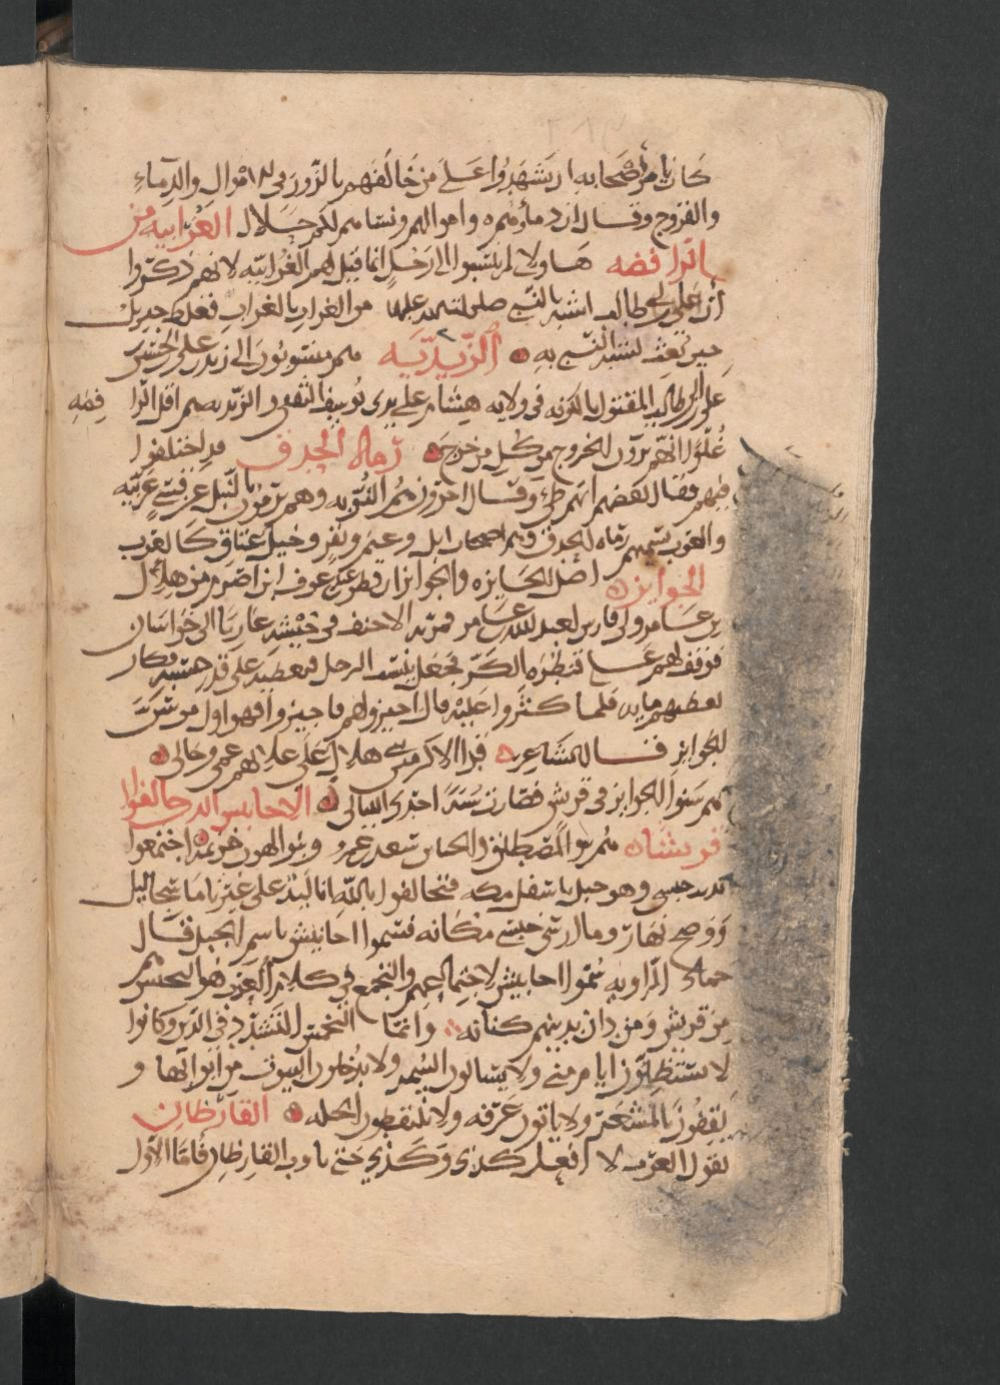 كان يامر أصحابه ان يشهدوا على من خالفهم بالزور في الاموال والدماء
والفروج وقال ان دماؤهم واموالهم ونساهم لكم حلال الغرابيه من
الرافضه هاولاي لم ينسبوا الى رجل انما قيل لهم الغرابيه لانهم ذكروا
أن علي بن ابي طالب اشبه بالنبي صلى الله عليهما من الغراب بالغراب فغلط جبريل
حين بعث لشبه النبي به الزيديه هم منسوبون الى زيد بن علي بن الحسين
علي بن ابي طالب المقتول بالكوفه في ولايه هشام على يدي يوسف الثقفي والزيديه هم اقل الرافضه
غلوا الا انهم يرون الخروج مع كل من خرج رماه الحدق قد اختلفوا
فيهم فقال بعضهم انهم طي وقال اخرون هم النوبه وهم يرمون بالنبل عن قسي عربيه
والعرب تسميهم رماه الحدق وهم اصحاب ابل وغنم وبقر وخيل عتاق كالعرب
الجوايز اصل الجايزه والجوايز ان قطن بن عبد عوف ابن اصرم من هلال
بن عامر ولي فارس لعبد الله بن عامر فمر به الاحنف في جيشه غازيا الى خراسان
فوقف لهم على قنطره الكر فجعل ينسب الرجل فيعطيه على قدر حسبه فكان
يعطيهم مايه فلما كثروا عليه قال اجيزوهم فاجيزوا فهو اول من سن
الجوايز قال الشاعر فدا الاكرمين بني هلال على علاتهم عمي وخالي
هم سنوا الجوايز في قريش فصارت سنة اخرى الليالي الاحابيش الذين حالفوا
قريشا هم بنو المصطلق والحيا بن سعد بن عمرو وبنو الهون بن خزيمه اجتمعوا
بذنب حبشي وهو جبل باسفل مكه فتحالفوا بالله انا ليد على غيرنا ما سجا ليل
ووضح نهار وما ارسى حبشي مكانه فسموا احابيش باسم الجبل قال
حماد الراويه سموا احابيش لاجتماعهم والتجمع في كلام العرب هو التحبش
من قريش ومن دان بدينهم كنانه وانما التحمس التشدد في الدين وكانوا
لا يستظلون ايام منى ولا يسالون السمن ولا يدخلون البيوت من ابوابها و
يقفون بالمشعر ولا ياتون عرفه ولا يلتقطون الجله القارظان
تقول العرب لا افعل كذى وكذي حتى ياوب القارظان فاما الاول